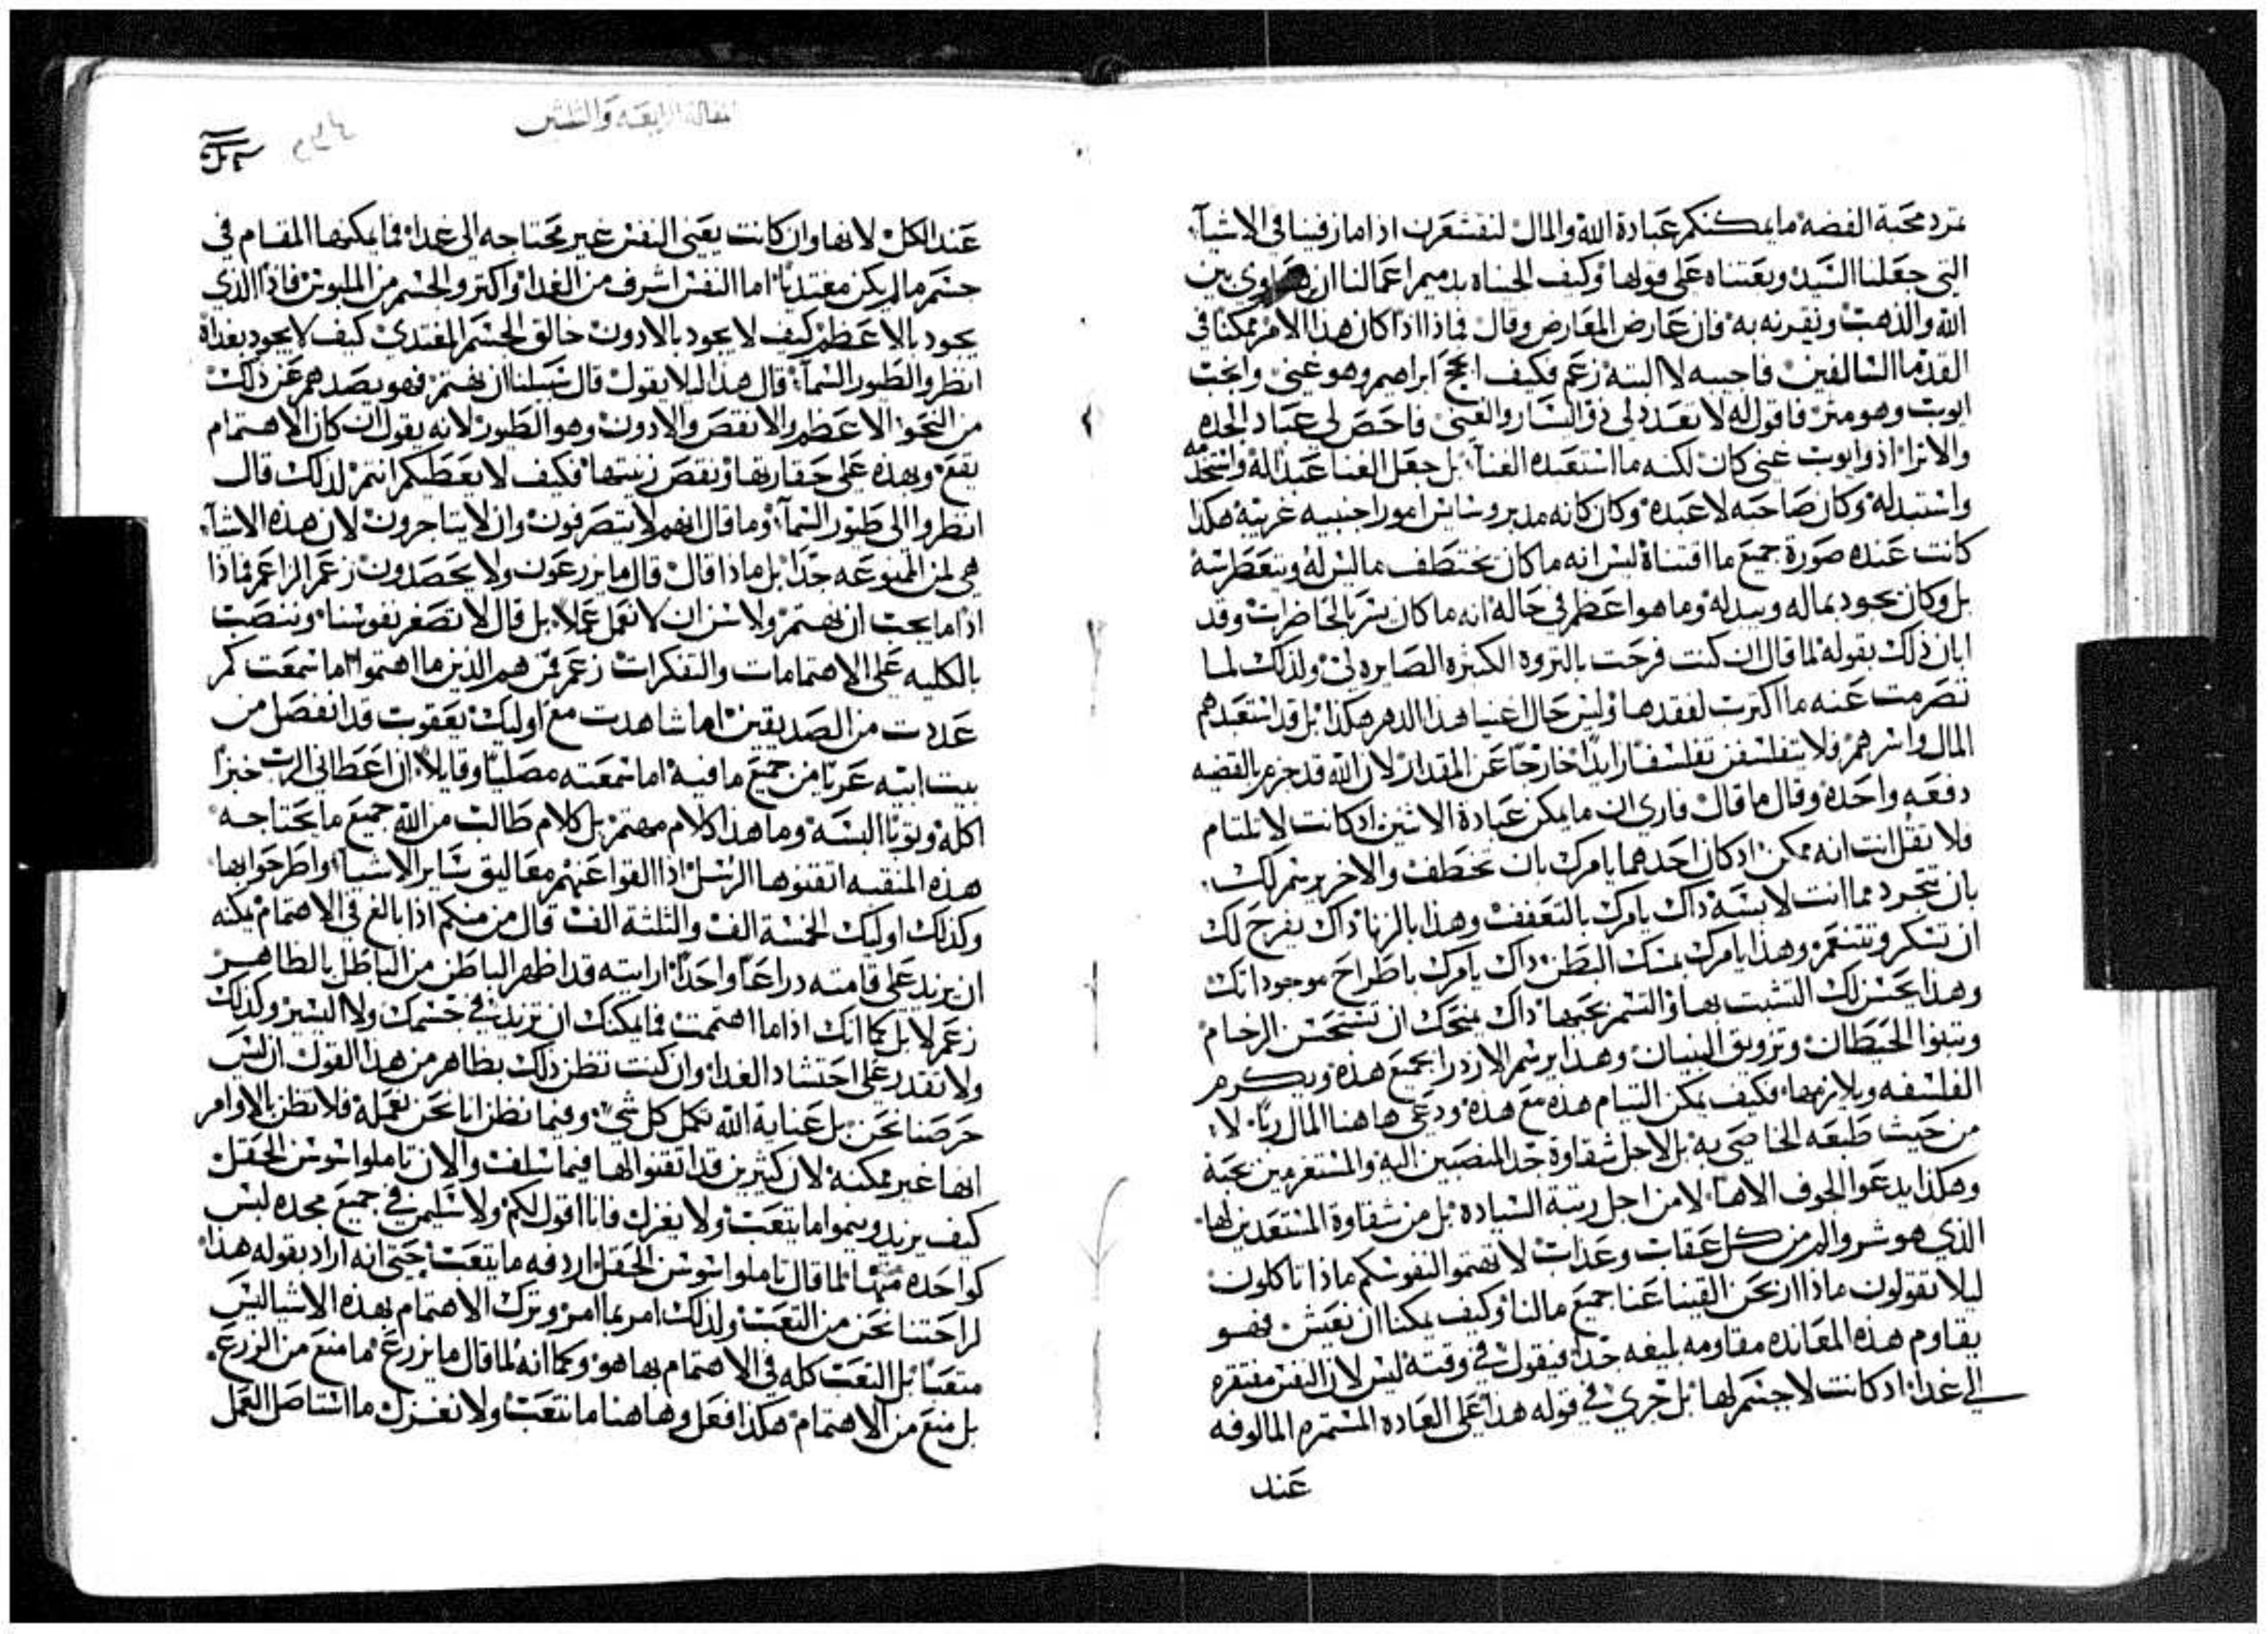 تمرد محبة الفضه ما يمكنكم عبادة الله والمال لنقشعرن اذا ما زفينا في الاشيآ
التي جعلنا السيد وبعتناه على قولها وكيف الجيناه بدميم اعمالنا ان يساوي بين
الله والذهب ونقرنه به فان عارض المعارض وقال فماذا اذا كان هذا الامر ممكنا في
القدما السالفين فاجيبه لا البته زعم فكيف انجح ابراهيم وهو غني وانجب
ايوب وهو متر فاقول له لا تعدد لي ذوي اليسار والغني فاحص لي عباد الجده
والاثرا اذ وايوب غني كان لكنه ما استعبده الغنآ بل جعل الغنا عبدا له واستخدمه
واستبد له وكان صاحبه لا عبده وكان كانه مدبر وسايس امورا جنبيه غريبه هكذا
كانت عنده صورة جميع ما اقتناه ليس انه ما كان يختطف ما ليس له ويتغطرسه
بل وكان يجود بماله ويبدله وما هو اعظم في حاله انه ما كان يسر بالحاضرات وقد
ابان ذلك بقوله لما قال ان كنت فرحت بالتروه الكثيره الصايره لي ولذلك لما
تصرمت عنه ما اكترت لفقدها وليس حال اغنيا هذا الدهر هكذا بل قد استعبدهم
المال واسرهم فلا يتفلسفن تفلسفا زايدا خارجا عن المقدار لان الله قد جزم بالقضيه
دفعه واحده وقال ما قال فاري ان ما يمكن عبادة الاثنين اذ كانت لا تلتام
فلا تقل انت انه ممكن اذ كان احدهما يامرك بان تخطف والاخر يرسم لك
بان تتجرد مما انت لابسه داك يامرك بالتعفف وهذا بالزنا داك يفرح لك
ان تسكر وتتنعم وهذا يامرك بمسك البطن داك يامرك باطراح موجوداتك
وهذا يحسن لك التشبت بها والتسمر بحبها داك يمنحك ان تستحسن الرخام
وتبنوا الحيطان وتزويق البنيان وهذا يرسم الازدرا بجميع هذه ويكرم
الفلسفه ويلازمها فكيف يمكن التيام هذه مع هذه ودعي هاهنا المال ربا لا
من حيث طبعه الخاصي به بل لاجل شقاوة جدا المنصبين اليه والمستغرمين بحبه
وهكذا يدعوا الجوف الاها لا من اجل رتبة السياده بل من شقاوة المستعبدين لها
الذي هو شر والم من كل عقاب وعذاب لا تهتموا لنفوسكم ماذا تاكلون
ليلا تقولون ماذا ان نحن القينا عنا جميع مالنا وكيف يمكنا ان نعيش فهو
يقاوم هذه المعانده مقاومه بليغه جدا فيقول في وقته ليس لان النفس مفتقره
الي غدا اذ كانت لا جسم لها بل جري في قوله هذا على العاده المستمره المالوفه
عند
المقالة الرابعه والثلثين
عند الكل لانها وان كانت يعني النفس غير محتاجه الى غداء فما يمكنها المقام في
جسم ما لم يكن مغتديا اما النفس اشرف من الغدا واكتر والجسم من الملبوس فاذا الذي
يجود بالاعظم كيف لا يجود بالادون خالق الجسم المغتدي كيف لا يجود بغداه
انظروا الطيور السمآ قال هذا ليلا يقول قال سبيلنا ان نهتم فهو يصدهم عن ذلك
من النحو الاعظم والانقص والادون وهو الطيور لانه يقول ان كان الاهتمام
يقع وبهذه على حقارتها ونقص زنيتها فكيف لا يعطيكم انتم لذلك قال
انظروا الى طيور السمآ وما قال انهم لا يتصرفون وان لا يتاجرون لان هذه الاشيآ
هي لمن الممنوعه جدا بل ماذا قال قال ما يزرعون ولا يحصدون زعم الزاعم فماذا
اذا ما يجب ان نهتم ولا سن ان لا نعمل عملا بل قال لا تصغر نفوسنا وننصب
بالكليه على الاهتمامات والتفكرات زعم فمن هم الذين ما اهتموا اما سمعت كم
عددت من الصديقين اما شاهدت مع اوليك يعقوب قد انفصل من
بيت ابيه عريا من جميع ما فيه اما سمعته مصليا وقايلا ان اعطاني الرب خبزا
اكله وتوبا البسه وما هذا كلام مهتم بل كلام طالب من الله جميع ما يحتاجه
هذه المنقبه اتقنوها الرسل اذ القوا عنهم معاليق ساير الاشيا واطرحوا بها
وكذلك اوليك الخمسة الف والثلثة الف قال من منكم اذا بالغ في الاهتمام يمكنه
ان يزيد على قامته دراعا واحدا ارايته قد اظهر الباطن من الباطل بالظاهر
زعم لا بل كما انك اذا ما اهتممت فما يمكنك ان تزيد في جسمك ولا اليسير وكذلك
ولا تقدر على احتشاد الغدا وان كنت تظن ذلك بظاهر من هذا القول ان ليس
حرصنا نحن بل عناية الله تكمل كل شي وفيما نظن انا نحن نعمله فلا تظن بالاوامر
انها غير ممكنه لان كثيرين قد اتقنوا لها فيما سلف والان تاملوا سوسن الحقل
كيف يزيد وينموا ما يتعب ولا يغزل فانا اقول لكم ولا سليمن في جميع مجده لبس
كواحده منها لما قال تاملوا سوسن الحقل اردفه ما يتعب حتى انه اراد بقوله هذا
لراحتنا نحن من التعب ولذلك امر بما امر وترك الاهتمام بهذه الاشيا ليس
متعبا بل التعب كله في الاهتمام بها هو وكما انه لما قال ما يزرع ما منع من الزرع
بل منع من الاهتمام هكذا فعل وهاهنا ما نتعب ولا نغزل ما استاصل العمل